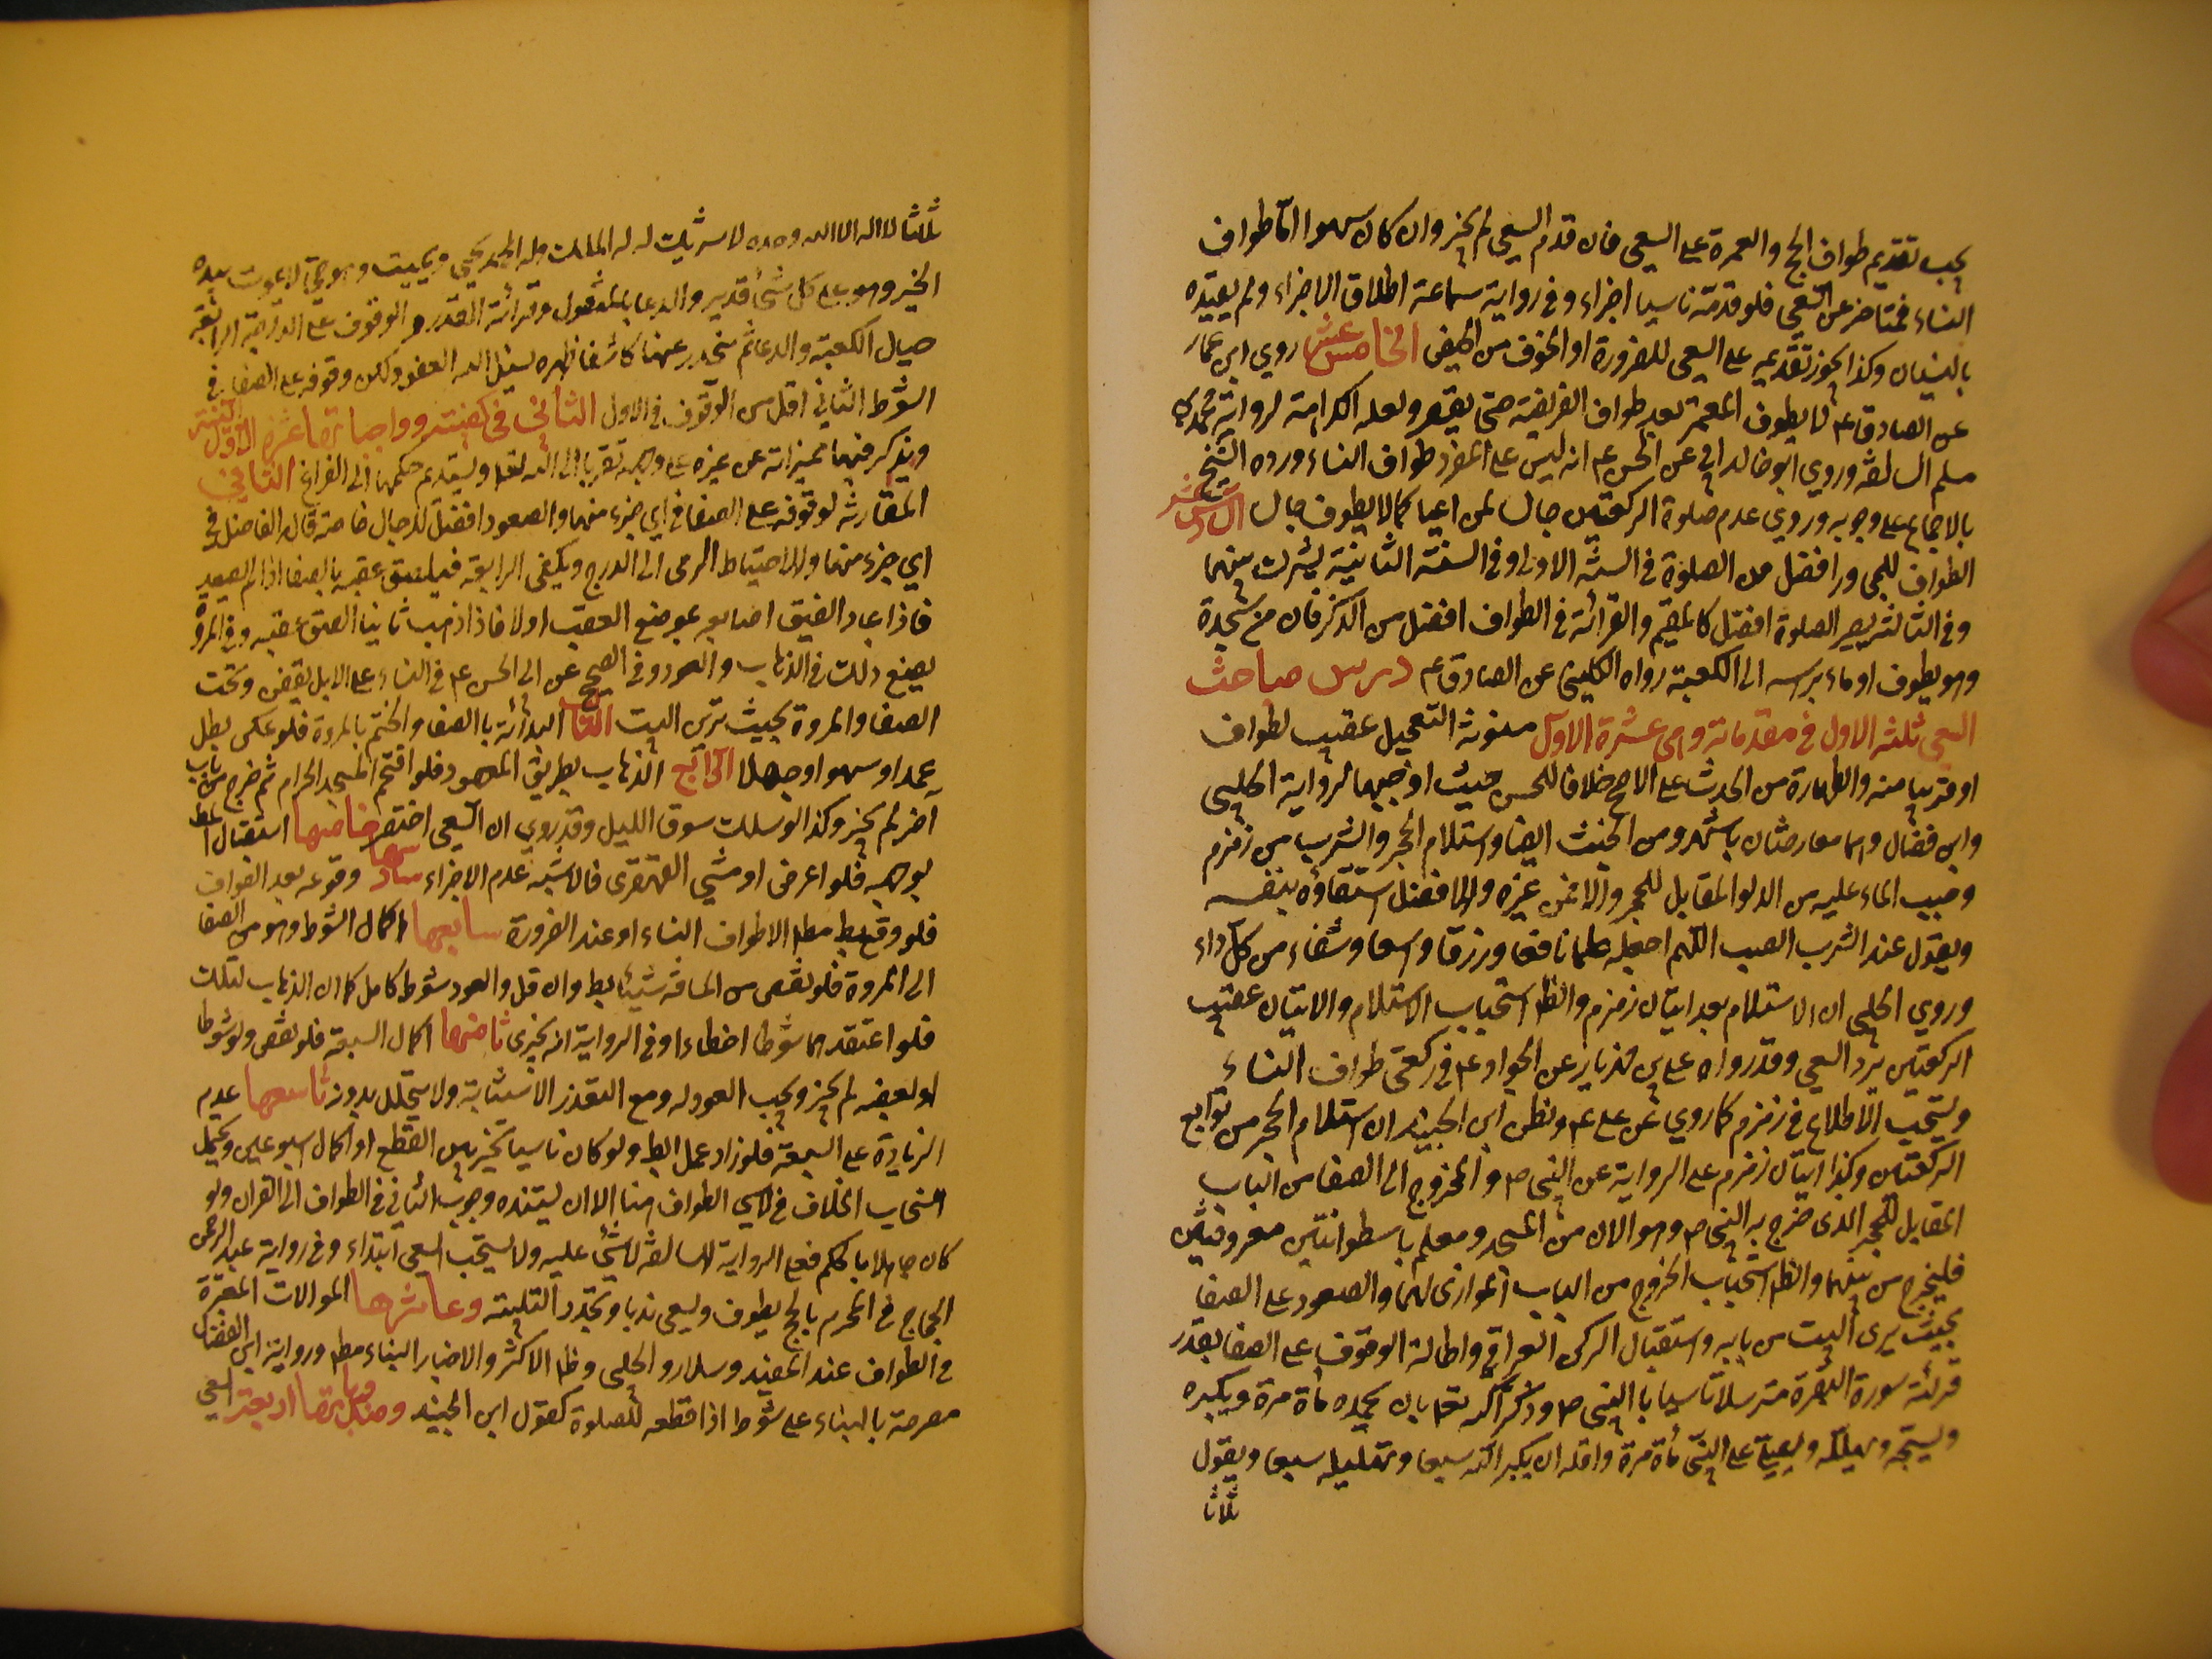 يجب تقديم طواف الحج والعمرة على السعي فان قدم السعي لم يجز وان كان سهوا اما طواف
النساء فمتاخر عن السعي فلو قدمه ناسيا اجزاء وفي رواية سماعة اطلاق الاجزاء ولم يقيده
بالنسيان وكذا يجوز تقديمه على السعي للضرورة او الخوف من الحيض الخامس عشر روي ابن عمار
عن الصادق ع لا يطوف المعتمر بعد طواف الفريضة حتى يقصر ولعله الكراهة لرواية محمد بن
مسلم السالفة وروي ابو خالد في عن الحسن ع انه ليس على المفرد طواف النساء ورده الشيخ
بالاجماع على وجوبه وروي عدم صلوة الركعتين جالسا لمن اعيا كما لا يطوف جالسا السادس عشر
الطواف للمجاور افضل من الصلوة في السنة الاولى وفي السنة الثانية يشرك بينهما
وفي الثالثة يصير الصلوة افضل كالمقيم والقرائة في الطواف افضل من الذكر فان مر بسجدة
وهو يطوف اوماء براسه الى الكعبة رواه الكليني عن الصادق ع درس مباحث
السعي ثلثه الاول في مقدماته وهي عشرة الاول مسنونة التعجيل عقيب لطواف
او قريبا منه والطهارة من الحدث على الاصح خلافا للحسن حيث اوجبها لرواية الحلبي
وابن فضال وهما معارضتان باشهر ومن الخبث ايضا واستلام الحجر والشرب من زمزم
وصب الماء عليه من الدلو المقابل للحجر والا فمن غيره والافضل استقاؤه بنفسه
ويقول عند الشرب الصب اللهم اجعله علما نافعا ورزقا واسعا وشفاء من كل داء
وروي الحلبي ان الاستلام بعد اتيان زمزم والظ استحباب الاستلام والاتيان عقيب
الركعتين يرد السعي وقد رواه علي بن مهزيار عن الجواد ع في ركعتي طواف النساء
ويستحب الاطلاع في زمزم كما روي عن علي ع ونظن ابن الجنيد ان استلام الحجر من توابع
الركعتين وكذا اتيان زمزم على الرواية عن النبي ص والخروج الى الصفا من الباب
المقابل للحجر الذي خرج به النبي ص وهو الان من المسجد ومعلم باسطوانتين معروفتين
فليخرج من بينهما والظ استحباب الخروج من الباب الموازي لهما والصعود على الصفا
بحيث يرى البيت من بابه واستقبال الركن العراقي واطالة الوقوف على الصفا بقدر
قرئة سورة البقرة مترسلا تاسيا بالنبي ص وذكر الله تعالى بان يحمده مأة مرة ويكبره
ويسبحه ويهلله ويصلي على النبي مأة مرة واقله ان يكبر الله سبعا وتهليله سبعا ويقول
ثلاثا
ثلاثا لا اله الا الله وحده لا شريك له له الملك وله الحمد يحيي ويميت وهو حي لا يموت بيده
الخير وهو على كل شئ قدير والدعا بالمنقول وقرائة القدر والوقوف على الدرجة الرابعة
حيال الكعبة والدعا ثم ينحدر عنها كاشفا ظهره يسئل الله العفو وليكن وقوفه على الصفا في
الشوط الثاني اقل من الوقوف في الاول الثاني في كيفيته وواجباتها عشرة الاول النية
ويذكر فيها مميزاته عن غيره على وجهه تقربا الى الله تعالى ويستديم حكمها الى الفراغ الثاني
المقارنة لوقوفه على الصفا في اي جزء منها والصعود افضل للرجال خاصة قال الفاضل في
اي جزء منها والاحتياط الرمي الى الدرج ويكفي الرابعة فيلصق عقبه بالصفا اذا لم يصعد
فاذا عاد الصق اصابعه بموضع العقب اولا فاذا ذهب ثانيا الصق عقبه وفي المروة
يصنع ذلك في الذهاب والعود وفي الصحيح عن ابي الحسن ع في النساء على الابل يقفن تحت
الصفا والمروة بحيث ترين البيت الثالث البدائة بالصفا والختم بالمروة فلو عكس بطل
عمدا وسهوا وجهلا الرابع الذهاب بطريق المعهود فلو اقتحم المسجد الحرام ثم خرج من باب
اخر لم يجز وكذا لو سلك سوق الليل وقد روي ان السعي اختصر خامسها استقبال المط
بوجهه فلو اعرض او مشي القهقرى فالاشبه عدم الاجزاء سادسها وقوعه بعد الطواف
فلو وقع بطل مط الا طواف النساء او عند الضرورة سابعها اكمال الشوط وهو من الصفا
الى المروة فلو نقص من المسافة شيئا بط وان قل والعود شوط كامل كما ان الذهاب كذلك
فلو اعتقدهما شوطا اخطاء وفي الرواية انه يجزي ثامنها اكمال السبعة فلو نقص ولو شوطا
او بعضه لم يجز ويجب العود له ومع التعذر الاستنابة ولا يتحلل بدونه تاسعها عدم
الزيادة على السبعة فلو زاد عمدا بطل ولو كان ناسيا تخير بين القطع او اكمال اسبوعين ويحتمل
انسحاب الخلاف في ناسي الطواف هنا الا ان يستنده وجوب الثاني في الطواف الى القران ولو
كان جاهلا بالحكم فعلى الرواية السالفة لا شئ عليه ولا يستحب السعي ابتداء وفي رواية عبد الرحمن
الحجاج في المحرم بالحج يطوف ويسعى ندبا ويجدد التلبية وعاشرها الموالات المعتبرة
في الطواف عند المفيد وسلار والحلبي وظ الاكثر والاخبار البناء مط ورواية ابن الفضال
مصرحة بالبناء على شوط اذا قطعه للصلوة كقول ابن الجنيد ومندوباتها اربعة السعي